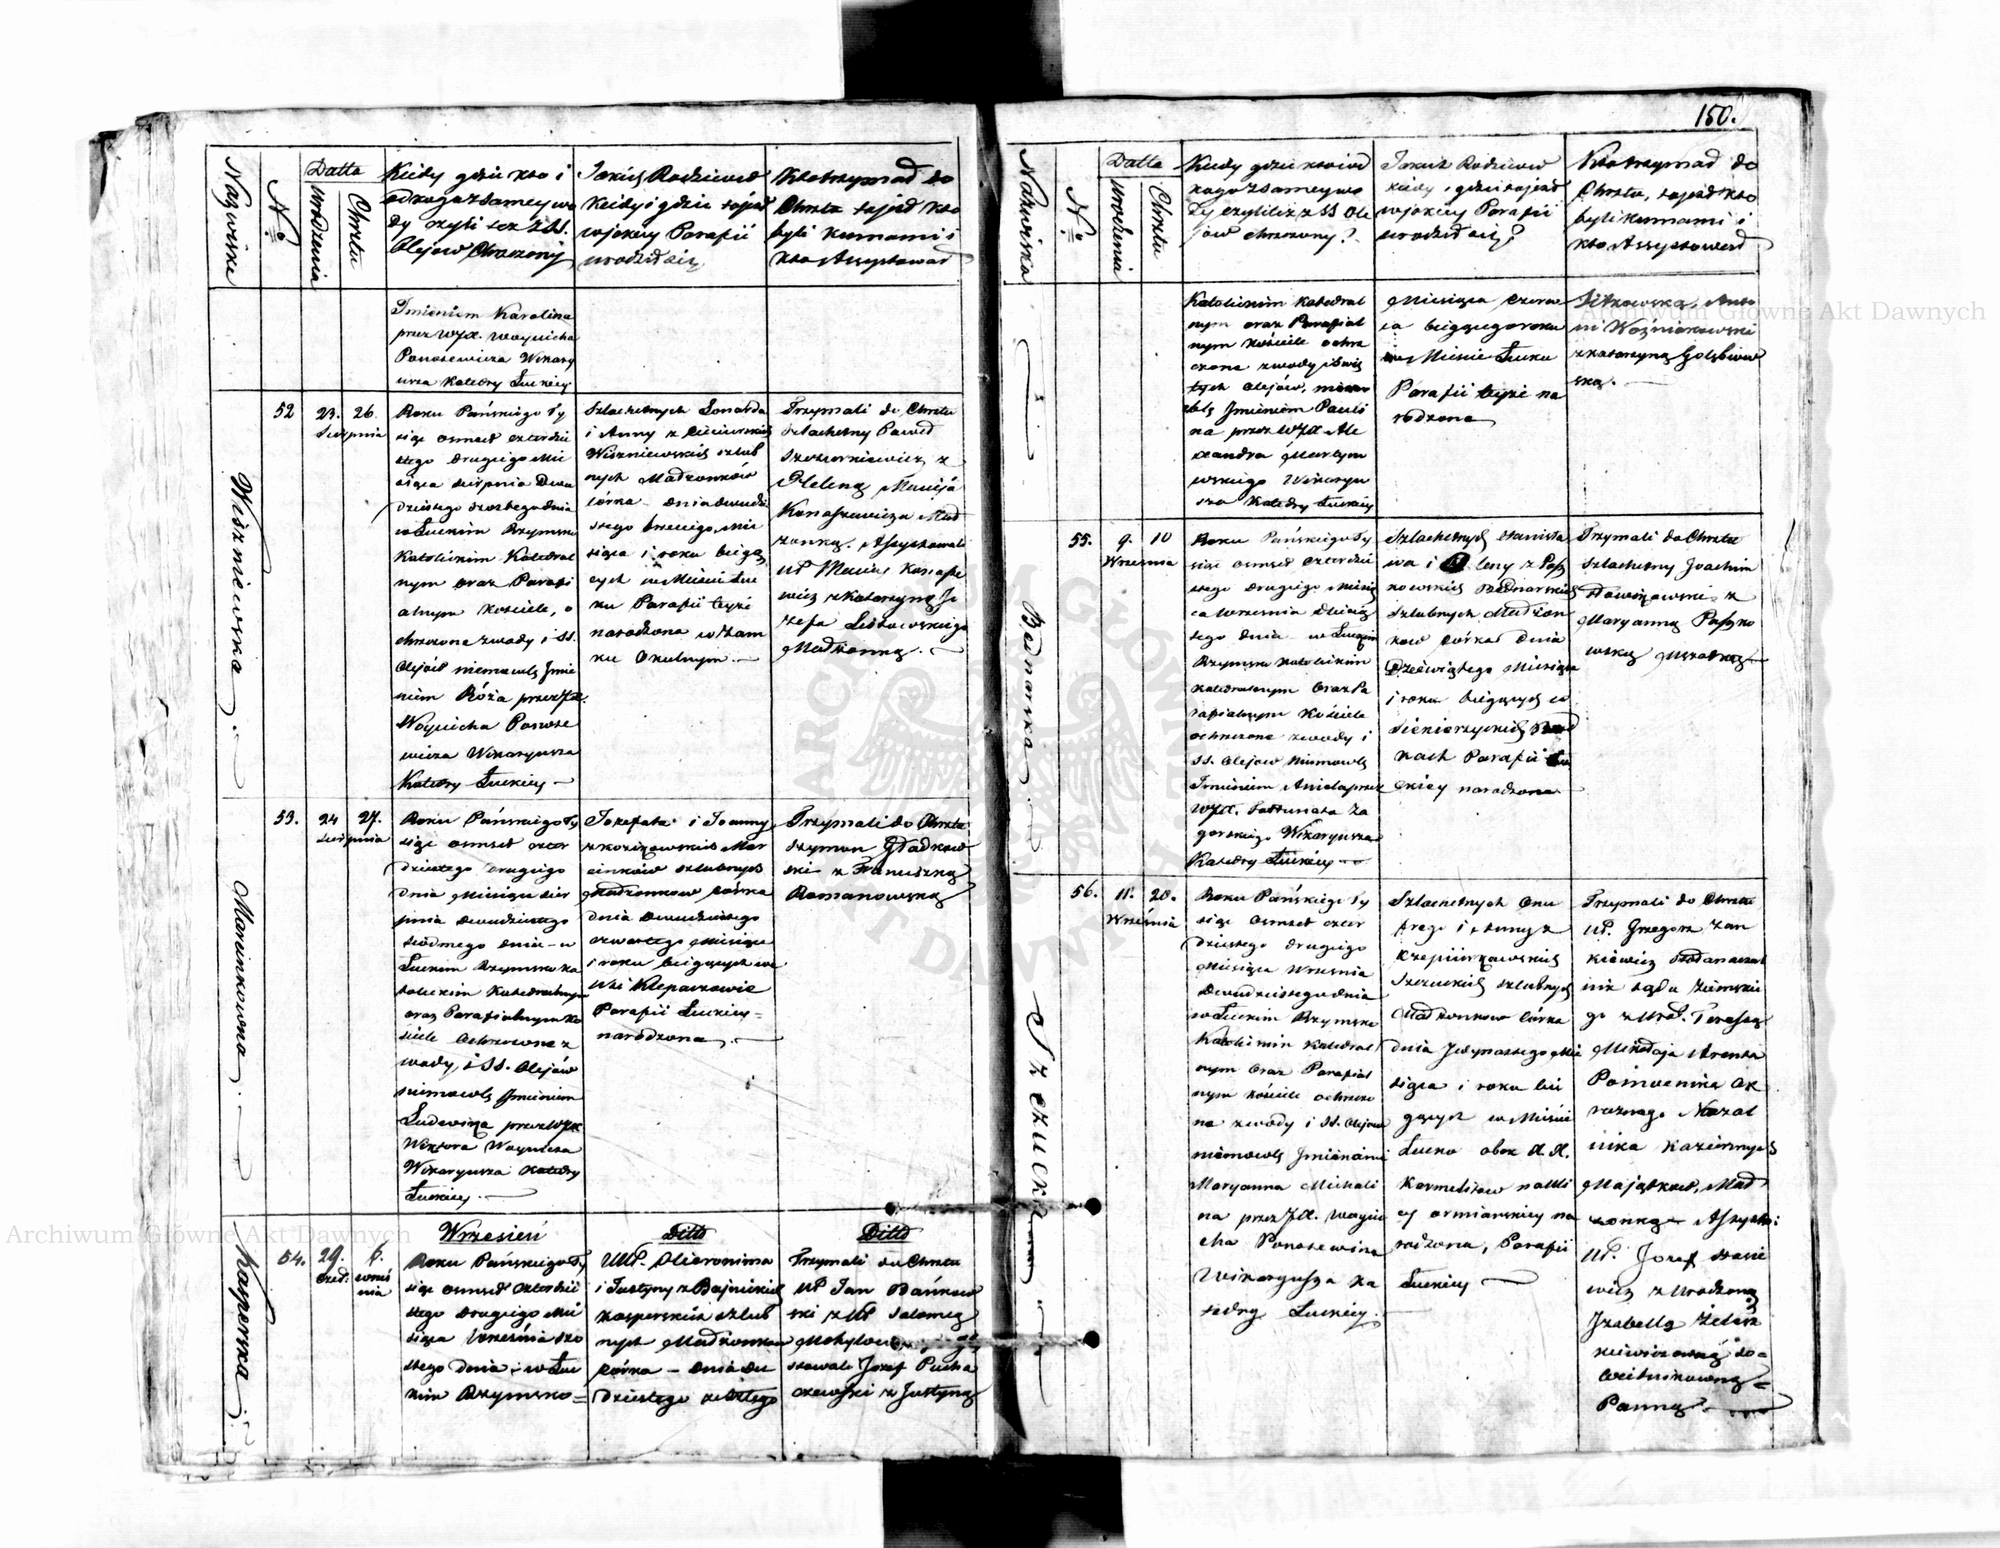 150.
Nazwiska
N.o
Datta
urodzenia
Chrztu
Kiedy gdzie kto i
od kogo z samey wo
dy czyli też z SS.
Olejow Chrzczony
Jakich Rodziców
Kiedy i gdzie tojest
w jakiey Parafii
urodził się
Kto trzymał do
Chrztu tojest kto
byli Kumami i
kto Assystował
Imieniem Karolina
przez WJX. Woyciecha
Ponosewicza Wikary
usza Katedry Łuckiey
Wiszniewska
52
23. 26.
Sierpnia
Roku Pańskiego Ty
siąc osmset czterdzie
stego drugiego Mie
siąca Sierpnia Dwu
dziestego szóstego dnia
w Łuckim Rzymsko
Katolickim Katedral
nym oraz Parafi
alnym Kościele, o
chrzczona z wody i SS.
Olejów niemowlę Imie
niem Róża przez JX.
Woyciecha Ponose
wicza Wikaryusza
Katedry Łuckiey
Szlachetnych Leonarda
i Anny z
Wiszniewskich szlub
nych Małżonków
córka dnia dwudzie
stego trzeciego Mie
siąca i roku bieżą
cych w Mieście Łuc
ku Parafii teyże
narodzona w Zam
ku Okolnym
Trzymali do Chrztu
szlachetny Paweł
z
Heleną Macieja
Konaszewicza Mał
żonką. Assystowali
UP Maciej Konasze
wicz z Katarzyną Jó
zefa Lisowskiego
Małżonką.
Marcinkowna
53.
24 27.
Sierpnia
Roku Pańskiego Ty
siąc osmset czter
dziestego drugiego
dnia Miesiąca Sier
pnia dwudziestego
siódmego dnia w
Łuckim Rzymsko ka
tolickim Katedralnym
oraz Parafialnym Ko
ściele Ochrzczona z
wody, i SS. Olejów
niemowlę Imieniem
Ludwika przez WJX
Wiktora Woyciecha
Wikaryusza Katedry
Łuckiey.
Jozefata i Joanny
z Kozickowskich Mar
cinków szlubnych
Małżonkow córka
dnia Dwudziestego
czwartego Miesiąca
i roku bieżących we
Wsi Kleparzowie
Parafii Łuckiey
narodzona.
Trzymali do Chrztu
Szymon Gładkow
ski z Franciszką
Romanowską
Kasperska
54.
29. 6.
Wrzesień
Roku Pańskiego Ty
siąc osmset czterdzie
stego drugiego Mie
siąca Września szo
stego dnia w Łuc
kim Rzymsko
Ditto
UUP. Hieronima
i Justyny z Bajnickich
Kasperskich szlub
nych Małżonkow
córka dnia dwu
dziestego
Ditto
Trzymali do Chrztu
UP Jan Bańkow
ski z UP Salomeą
stowali Jozef Pucha
czewski z Justyną
Nazwiska
N.o
Datta
urodzenia
Chrztu
Kiedy gdzie kto i od
kogo z samey wo
dy czyli li z z SS Ole
jów chrzczony?
Jakich Rodziców
kiedy, gdzie tojest
w jakiey Parafii
urodził się?
Kto trzymał do
Chrztu, tojest kto
byli kumami i
kto Assystował
Katolickim Katedral
nym oraz Parafial
nym Kościele ochrz
czona z wody i Świę
tych Olejów, niemo
wlę Imieniem Pauli
na przez WJX Ale
xandra Martyn
owskiego Wikaryu
sza Katedry Łuckiey
Miesiąca Czerw
ca bieżącego roku
w Mieście Łucku
Parafii teyże na
rodzona
Anto
ni Woźniakowski
z Katarzyną Gołębiow
ską.
Bednarska
55.
9. 10
Września
Roku Pańskiego Ty
siąc osmset czterdzie
stego drugiego Miesią
ca Września dziesią
tego dnia w Łuckim
Rzymsko Katolickim
Katedralnym Oraz Pa
rafialnym Kościele
ochrzczona z wody i
SS. Olejow Niemowlę
Imieniem Aniela przez
WJX. Fortunata Za
gorskiego Wikaryusza
Katedry Łuckiey
Szlachetnych Stanisła
wa i leny z Pasz
kowskich Bednarskich
Szlubnych Małżon
kow córka dnia
Dziewiątego Miesiąca
i roku bieżących w
kach Parafii Łu
ckiey narodzona
Trzymali do Chrztu
Szlachetny Joachim
z
Maryanną Paszko
wską Mężatką
Szczucka
56.
11. 20.
Września
Roku Pańskiego Ty
siąc Osmset czter
dziestego drugiego
Miesiąca Września
Dwudziestego dnia
w Łuckim Rzymsko
Katolickim Katedral
nym Oraz Parafial
nym Kościele ochrzczo
na z wody i SS. Olejow
niemowlę Imionami
Maryanna Michali
na przez JX. Woycie
cha Ponosewicza
Wikaryusza Ka
tedry Łuckiey.
Szlachetnych Onu
frego i Anny z
Szczuckich szlubnych
Małżonkow Córka
dnia Jedynastego Mie
siąca i roku bie
żących w Mieście
Łucku obok X.X.
Karmelitow na Uli
cy ormiańskiey na
rodzona, Parafii
Łuckiey
Trzymali do Chrztu
UP. Grzegorz Jan
kiewicz
nik Sądu Ziemskie
go z Uroż. Teresą
Mikołaja Arenta
Pomocnika Ok
rężnego Naczel
nika Kaziennych
Majątków, Mał
żonką Assysto:
UP. Jozef Stasie
wicz z Urodzoną
Izabellą
Panną
Archiwum Główne Akt Dawnych
Archiwum Główne Akt Dawnych
ARCHIWUM GŁÓWNE AKT DAWNYCH